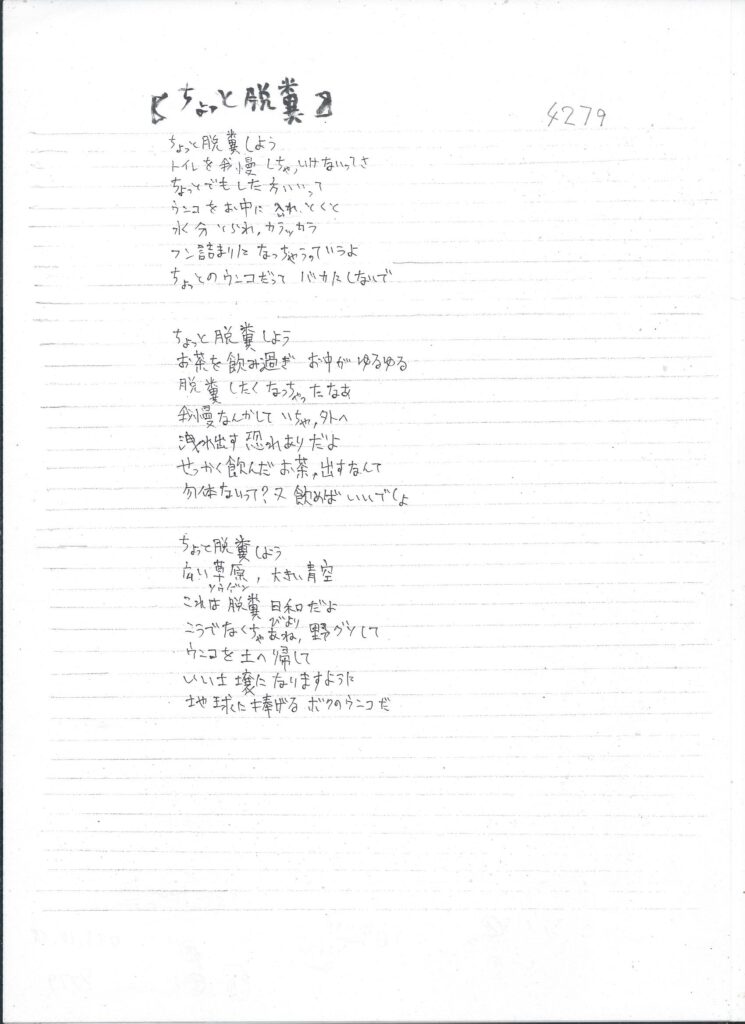 【ちょっと脱糞】
4279
ちょっと脱糞しよう
トイレを我慢しちゃ、いけないってさ
ちょっとでもした方いいって
ウンコをお中に入れ、とくと
水分とられ、カラッカラ
フン詰まりになっちゃうっていうよ
ちょっとのウンコだって バカにしないで
ちょっと脱糞しよう
お茶を飲み過ぎ お中がゆるゆる
脱糞したくなっちゃったなあ
我慢なんかしていちゃ、外へ
洩れ出す恐れありだよ
せっかく飲んだお茶、出すなんて
勿体ないって?又飲めばいいでしょ
ちょっと脱糞しよう
広い草原、大きい青空
ソウゲン
これは脱糞日和だよ
びより
こうでなくちゃあね、野グソして
ウンコを土へ帰して
いい土壌になりますように
地球に捧げるボクのウンコだ